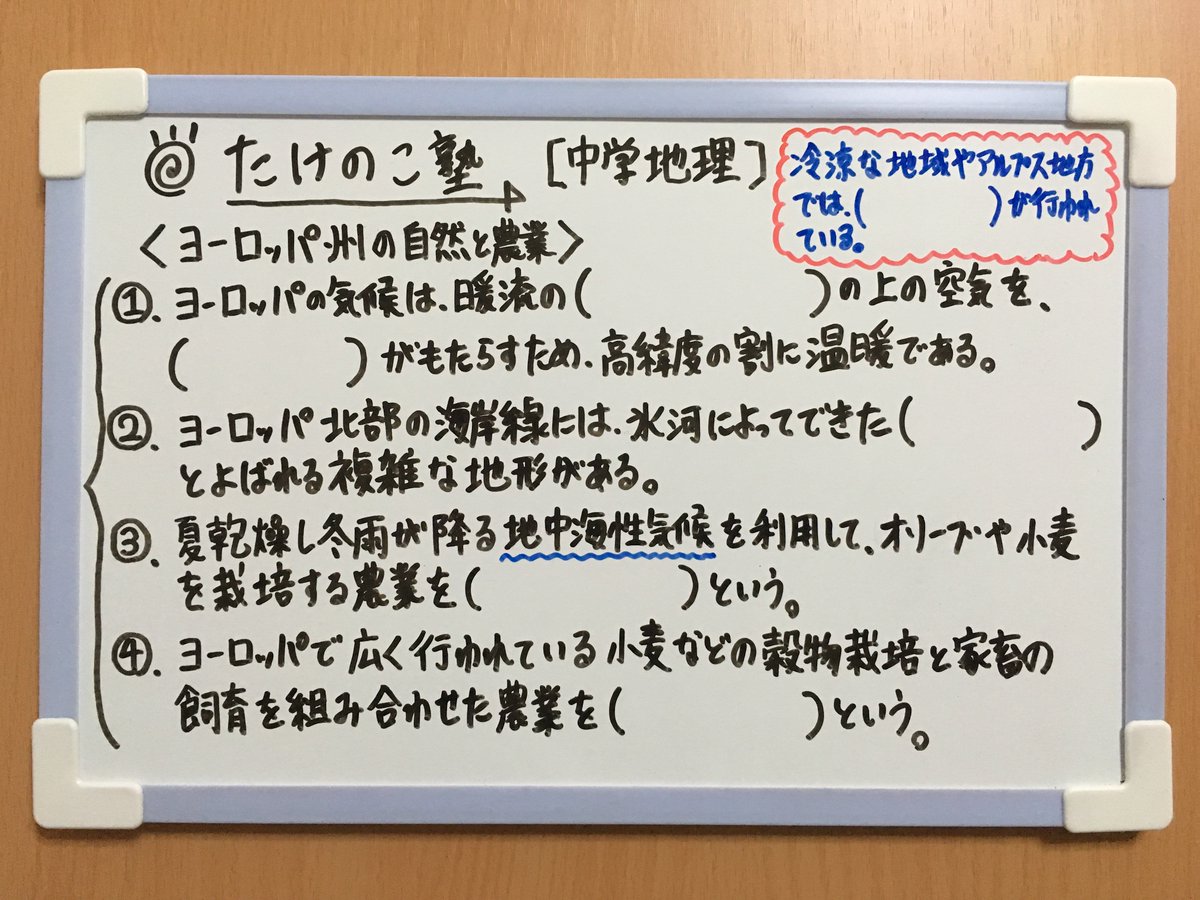 たけのこ塾 [中学地理]
冷涼な地域やアルプス地方
では、(　　　　)が行われ
ている。
〈ヨーロッパ州の自然と農業〉
①. ヨーロッパの気候は、暖流の(　　　　)の上の空気を、
(　　　　)がもたらすため、高緯度の割に温暖である。
②. ヨーロッパ北部の海岸線には、氷河によってできた(　　　　)
とよばれる複雑な地形がある。
③. 夏乾燥し冬雨が降る地中海性気候を利用して、オリーブや小麦
を栽培する農業を(　　　　)という。
④. ヨーロッパで広く行われている小麦などの穀物栽培と家畜の
飼育を組み合わせた農業を(　　　　)という。